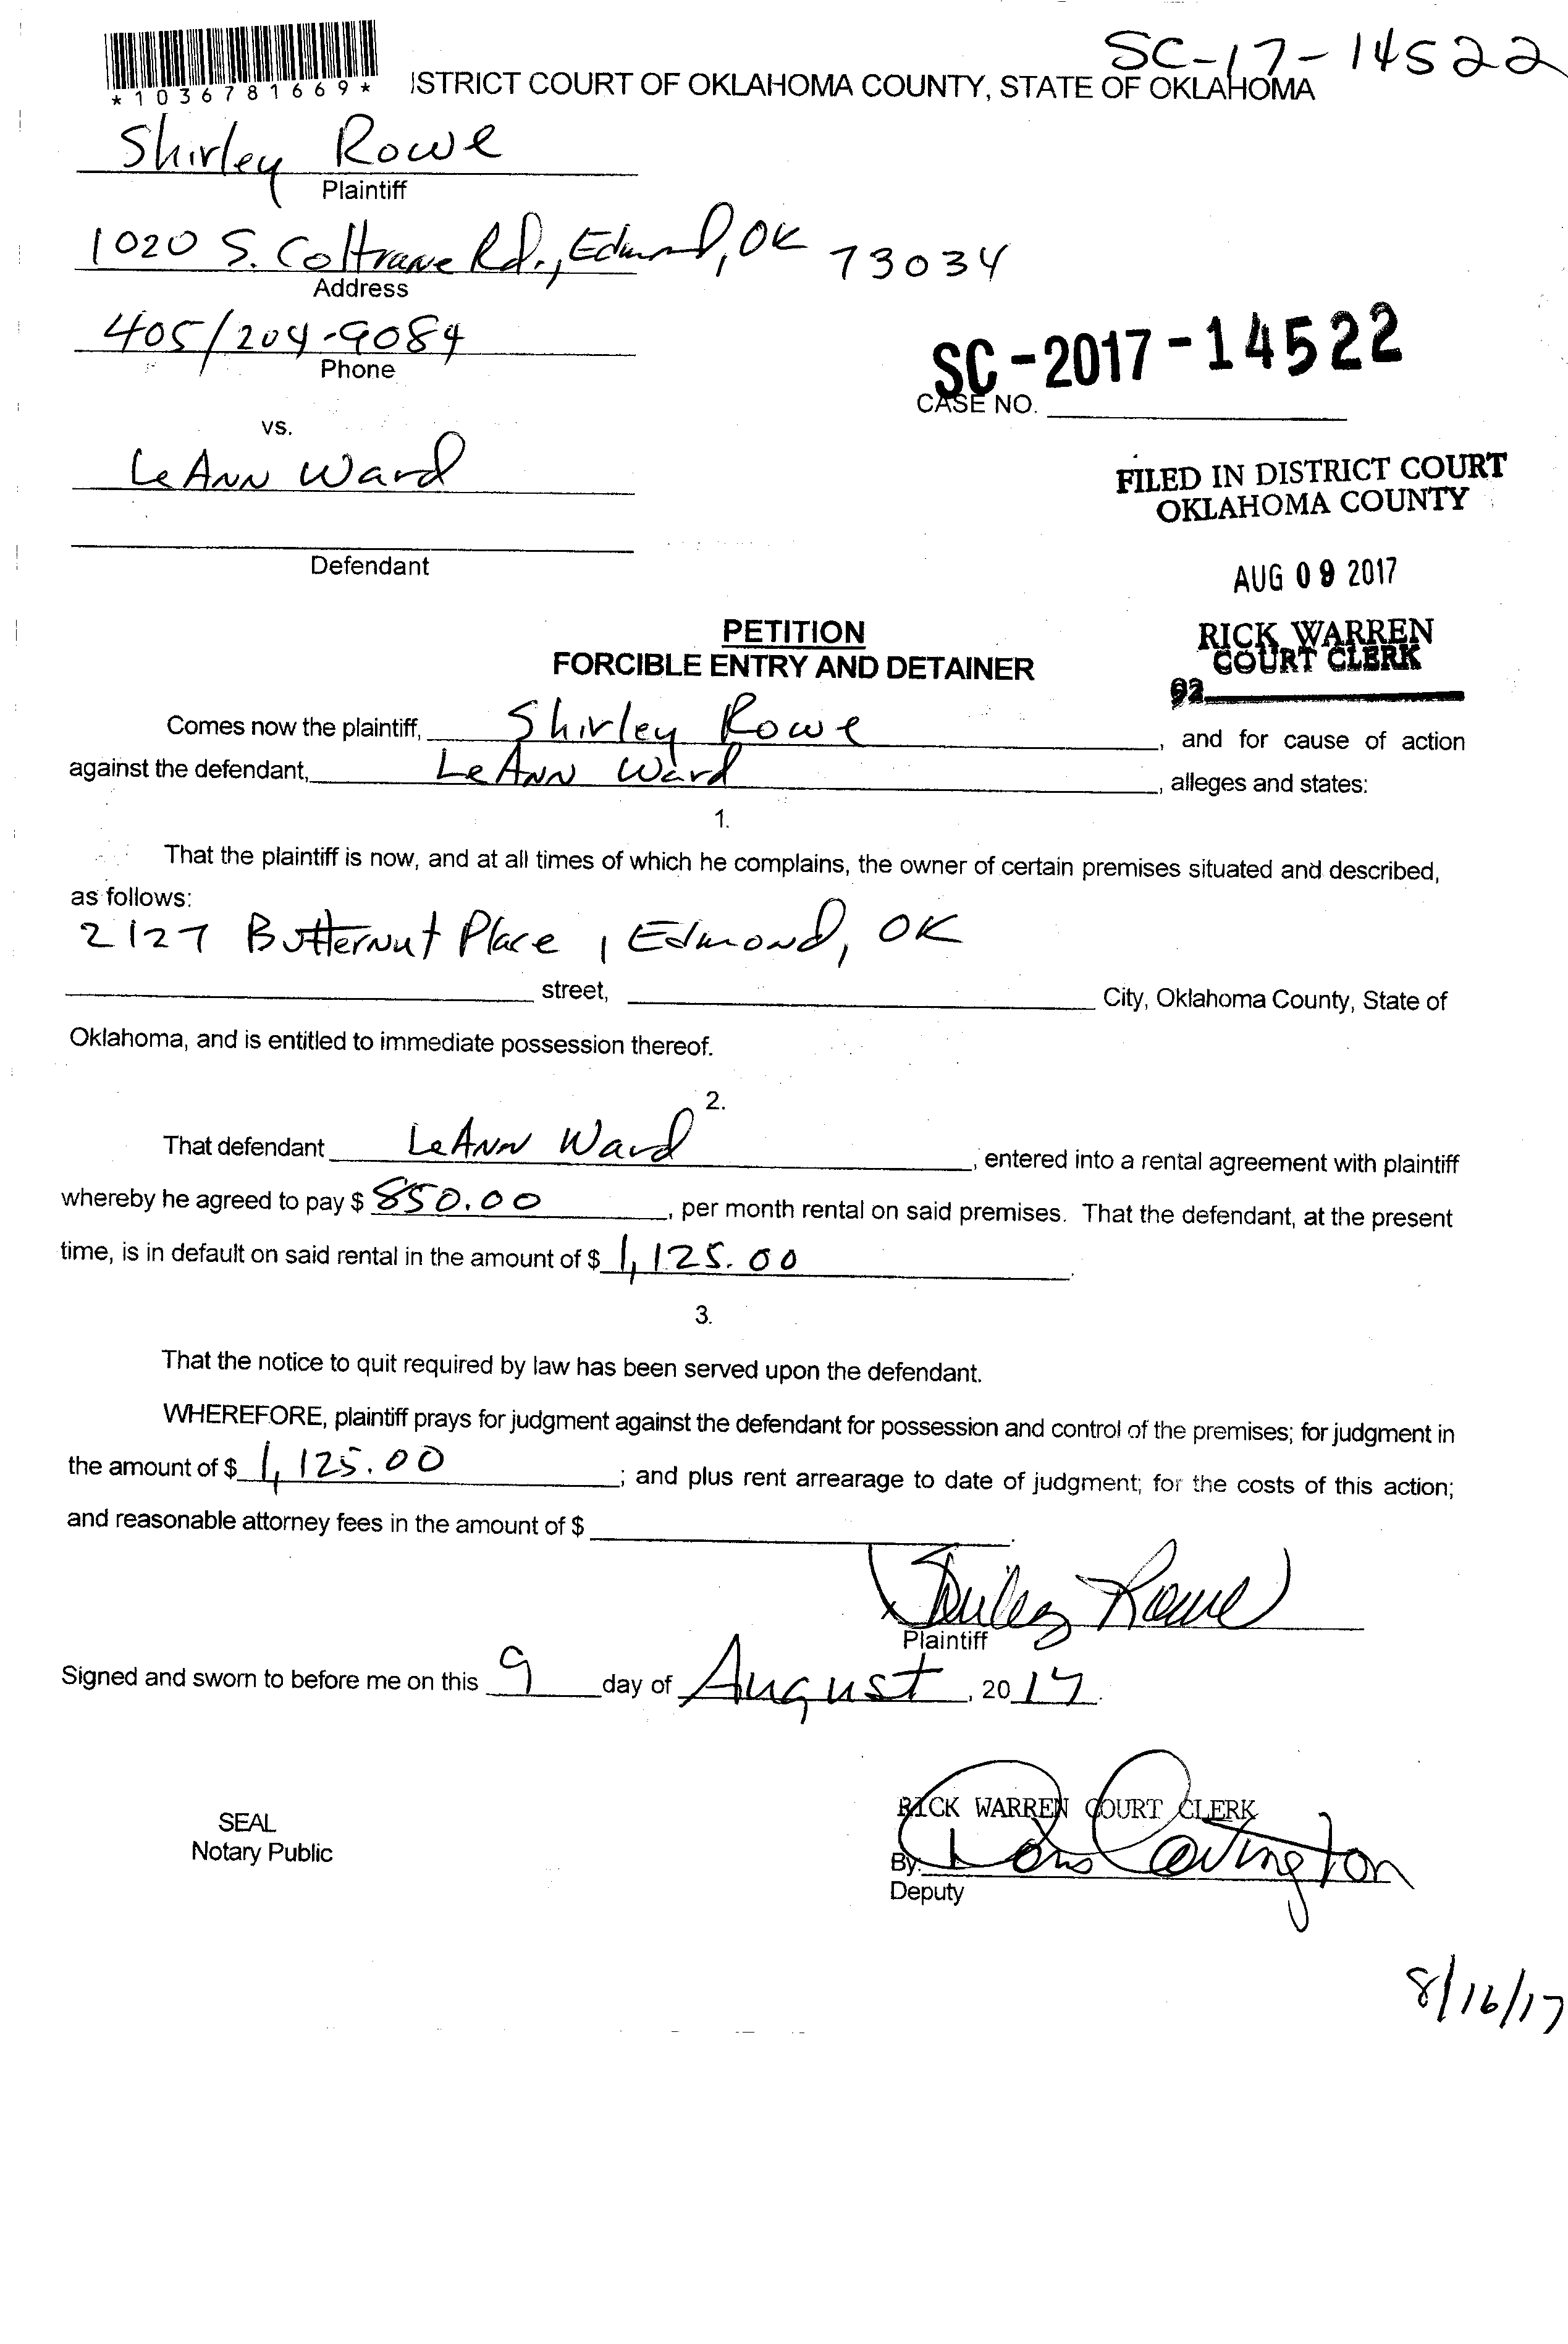 SC-17-14522
*1036781669* ISTRICT COURT OF OKLAHOMA COUNTY, STATE OF OKLAHOMA
Shirley Rowe
Plaintiff
1020 S. Coltrane Rd., Edmond, OK 73034
Address
405/204-9084
Phone
SC-2017-14522
CASE NO.
vs.
LeANN Ward
FILED IN DISTRICT COURT
OKLAHOMA COUNTY
Defendant
AUG 09 2017
RICK WARREN
COURT CLERK
PETITION
FORCIBLE ENTRY AND DETAINER
Comes now the plaintiff, Shirley Rowe, and for cause of action
against the defendant, LeANN Ward, alleges and states:
1.
That the plaintiff is now, and at all times of which he complains, the owner of certain premises situated and described,
as follows:
2127 Butternut Place, Edmond, OK
street, City, Oklahoma County, State of
Oklahoma, and is entitled to immediate possession thereof.
2.
That defendant LeANN Ward, entered into a rental agreement with plaintiff
whereby he agreed to pay $ 850.00, per month rental on said premises. That the defendant, at the present
time, is in default on said rental in the amount of $ 1,125.00.
3.
That the notice to quit required by law has been served upon the defendant.
WHEREFORE, plaintiff prays for judgment against the defendant for possession and control of the premises; for judgment in
the amount of $ 1,125.00; and plus rent arrearage to date of judgment; for the costs of this action;
and reasonable attorney fees in the amount of $ .
x Shirley Rowe
Plaintiff
Signed and sworn to before me on this 9 day of August, 2017.
RICK WARREN COURT CLERK
SEAL
Notary Public
By: Covington
Deputy
8/16/17